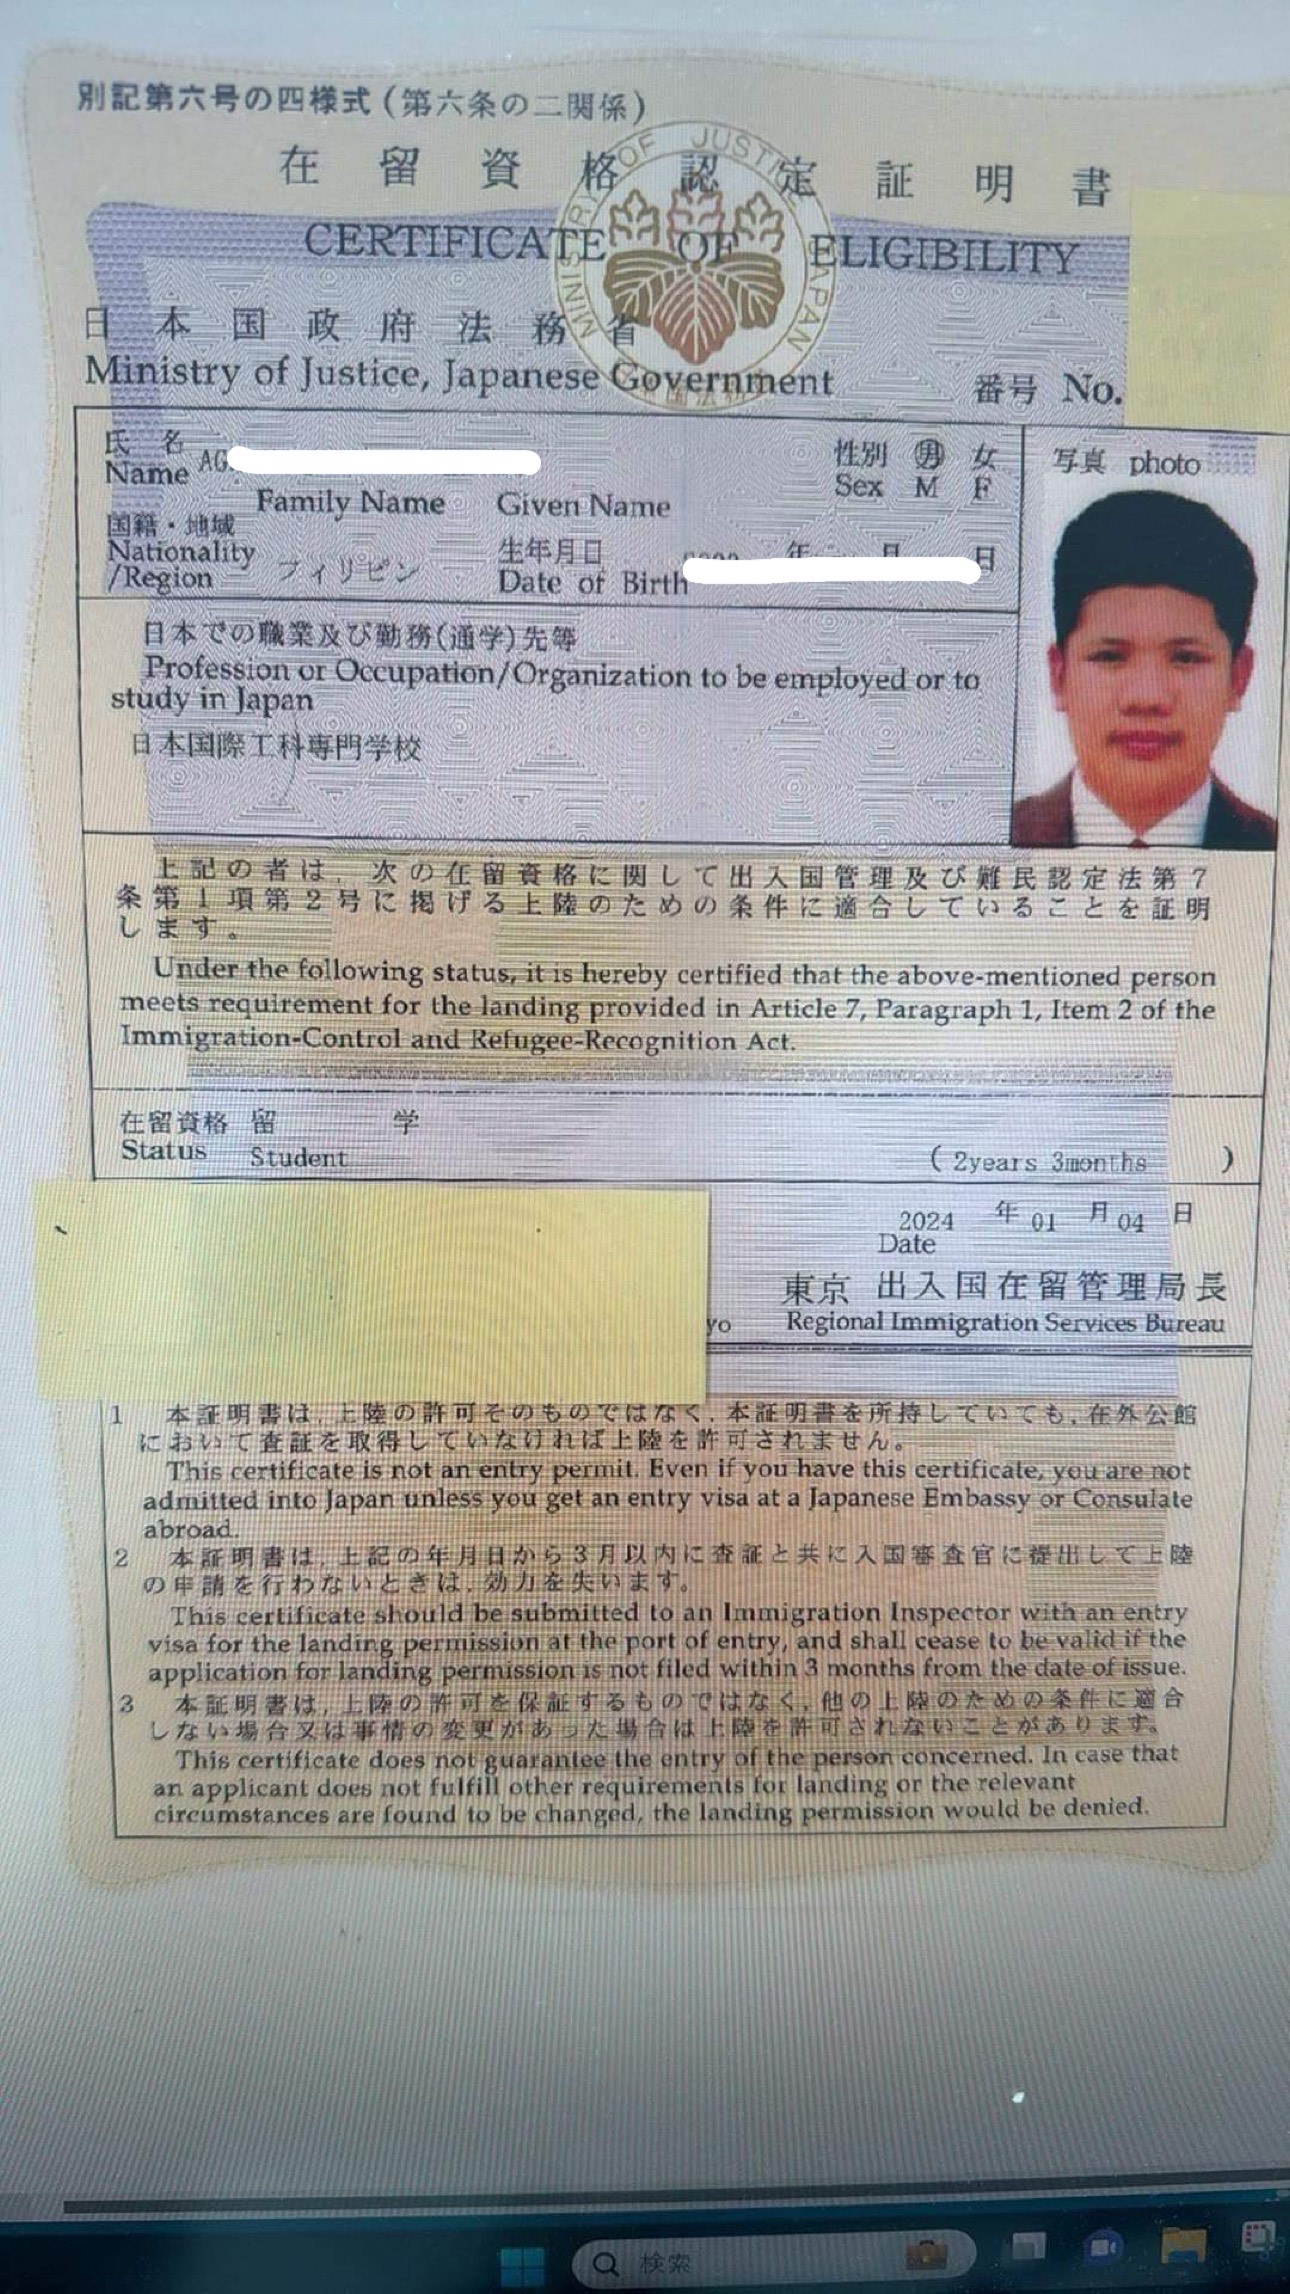 別記第六号の四様式(第六条の二関係)
在留資格認定証明書
CERTIFICATE OF ELIGIBILITY
MINISTRY OF JUSTICE JAPAN
日本国政府法務省
Ministry of Justice, Japanese Government
番号 No.
氏名
Name AG
Family Name Given Name
性別 男 女
Sex M F
写真 photo
国籍・地域
Nationality
/Region フィリピン
生年月日 年 月 日
Date of Birth
日本での職業及び勤務(通学)先等
Profession or Occupation/Organization to be employed or to
study in Japan
日本国際工科専門学校
上記の者は、次の在留資格に関して出入国管理及び難民認定法第7
条第1項第2号に掲げる上陸のための条件に適合していることを証明
します。
Under the following status, it is hereby certified that the above-mentioned person
meets requirement for the landing provided in Article 7, Paragraph 1, Item 2 of the
Immigration-Control and Refugee-Recognition Act.
在留資格 留学
Status Student
( 2years 3months )
2024 年 01 月 04 日
Date
東京 出入国在留管理局長
yo Regional Immigration Services Bureau
1 本証明書は、上陸の許可そのものではなく、本証明書を所持していても、在外公館
において査証を取得していなければ上陸を許可されません。
This certificate is not an entry permit. Even if you have this certificate, you are not
admitted into Japan unless you get an entry visa at a Japanese Embassy or Consulate
abroad.
2 本証明書は、上記の年月日から3月以内に査証と共に入国審査官に提出して上陸
の申請を行わないときは、効力を失います。
This certificate should be submitted to an Immigration Inspector with an entry
visa for the landing permission at the port of entry, and shall cease to be valid if the
application for landing permission is not filed within 3 months from the date of issue.
3 本証明書は、上陸の許可を保証するものではなく、他の上陸のための条件に適合
しない場合又は事情の変更があった場合は上陸を許可されないことがあります。
This certificate does not guarantee the entry of the person concerned. In case that
an applicant does not fulfill other requirements for landing or the relevant
circumstances are found to be changed, the landing permission would be denied.
検索